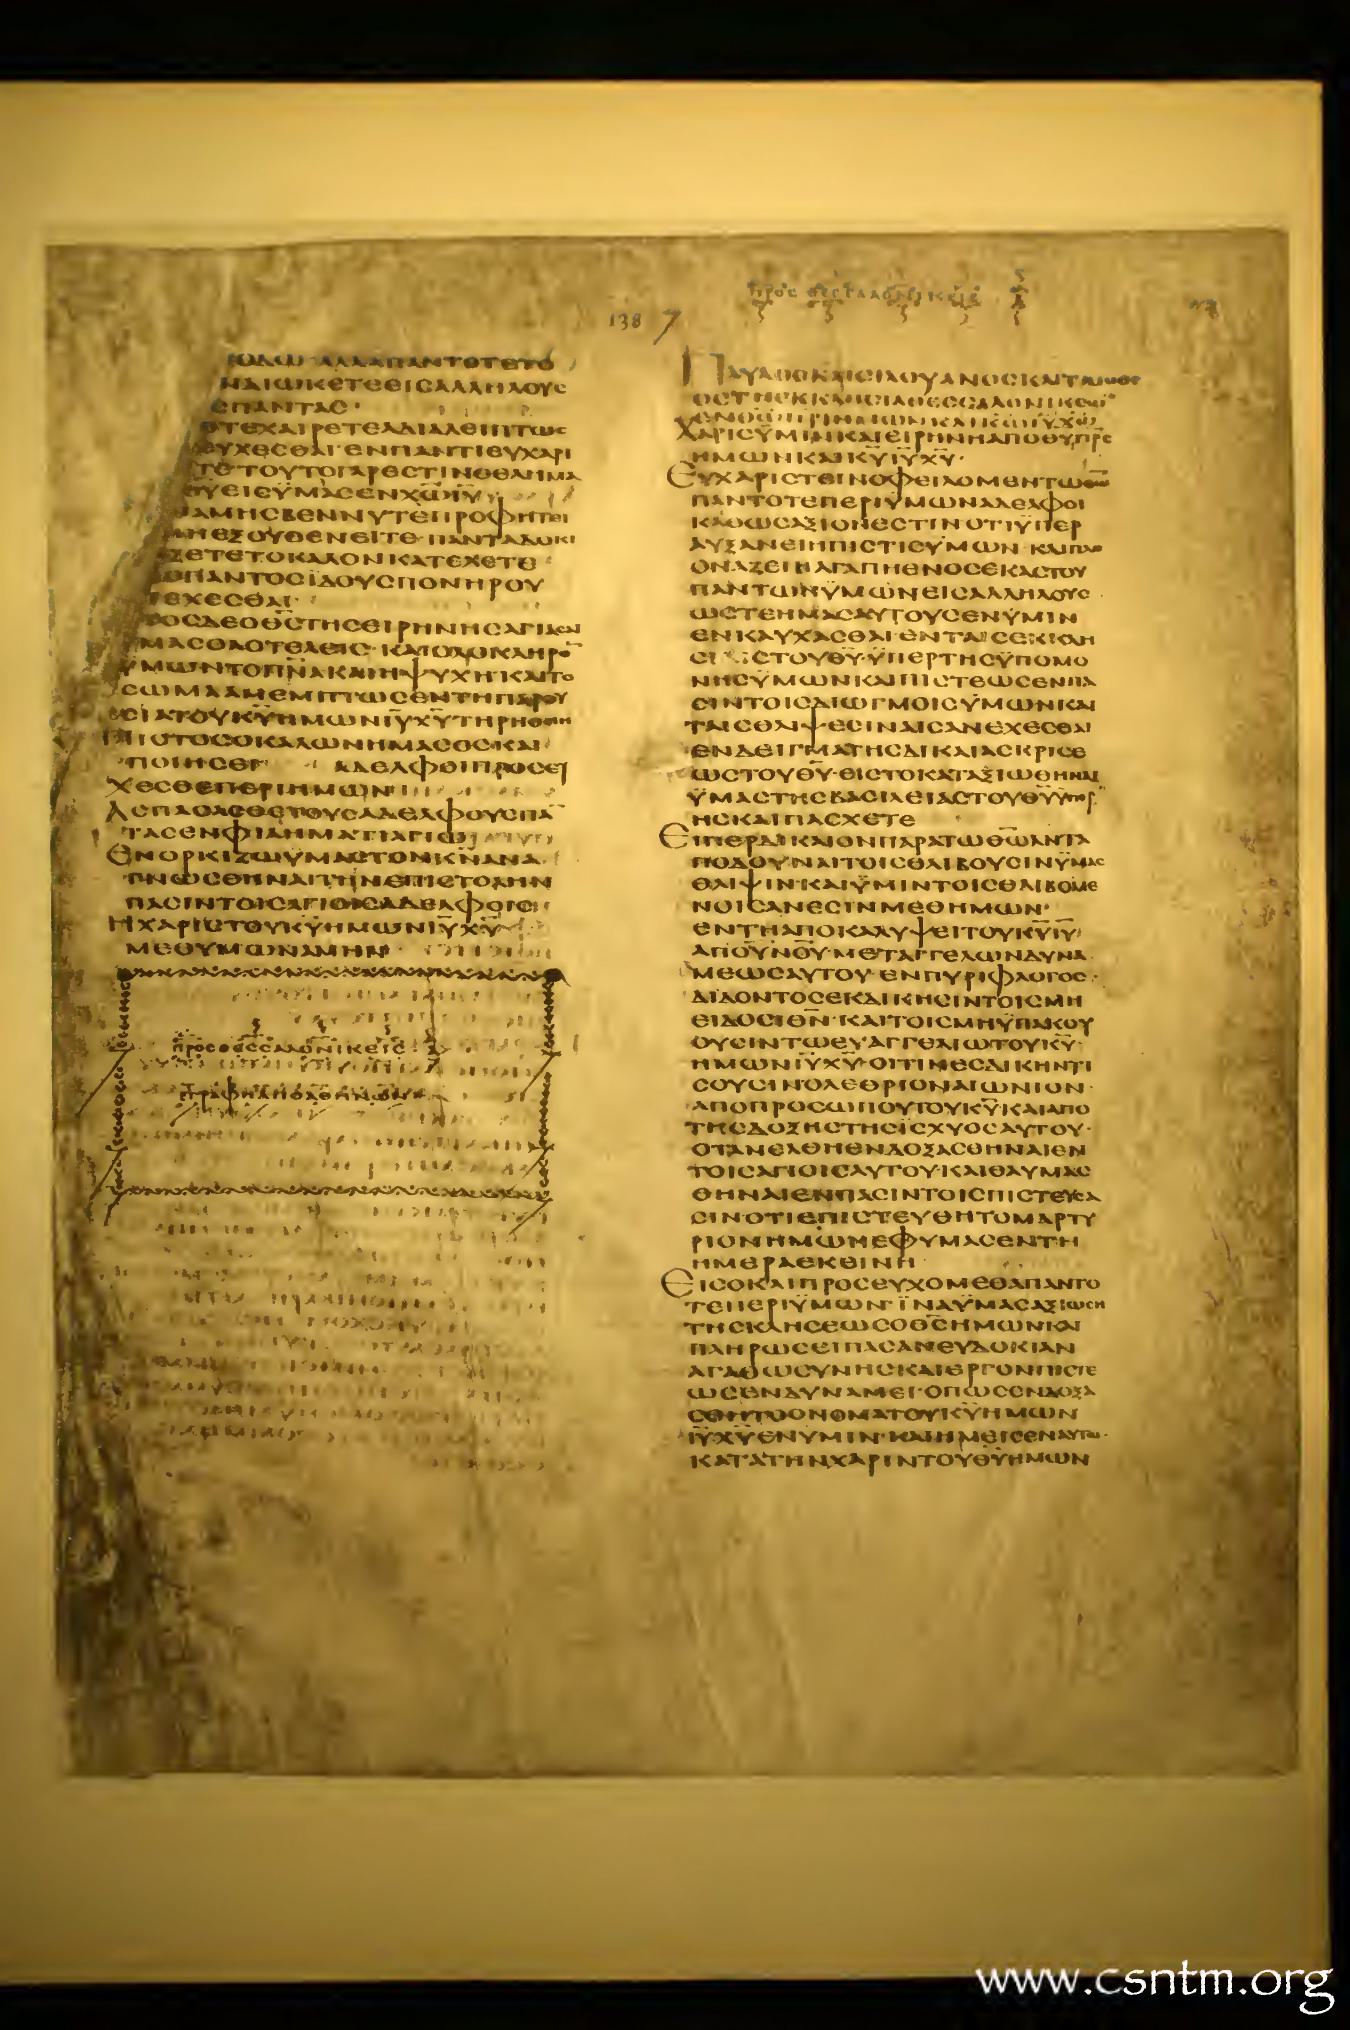 138
προς θεσσαλονικεις
ΑΛΛΑΠΑΝΤΟΤΕΤΟ
ΔΙΩΚΕΤΕΕΙΣΑΛΛΗΛΟΥΣ
ΠΑΝΤΑΣ·
ΧΑΙΡΕΤΕΑΔΙΑΛΕΙΠΤΩΣ
ΕΥΧΕΣΘΑΙ·ΕΝΠΑΝΤΙΕΥΧΑΡΙ
ΤΟΥΤΟΓΑΡΕΣΤΙΝΘΕΛΗΜΑ
ΕΙΣΫΜΑΣΕΝΧ̅Ω̅Ι̅Υ̅
ΠΡΟΦΗΤΕΙ
ΕΞΟΥΘΕΝΕΙΤΕ·ΠΑΝΤΑΔΟΚΙ
ΖΕΤΕΤΟΚΑΛΟΝΚΑΤΕΧΕΤΕ
ΠΑΝΤΟΣΪΔΟΥΣΠΟΝΗΡΟΥ
ΕΧΕΣΘΑΙ·
ΟΣΔΕΟΘ̅Σ̅ΤΗΣΕΙΡΗΝΗΣΑΓΙΑΣΑΙ
ΜΑΣΟΛΟΤΕΛΕΙΣ·ΚΑΙΟΛΟΚΛΗΡΟ̅
ΫΜΩΝΤΟΠ̅Ν̅ΑΚΑΙΗΨΥΧΗ·ΚΑΙΤΟ
ΣΩΜΑΑΜΕΜΠΤΩΣΕΝΤΗΠΑΡΟΥ
ΣΙΑΤΟΥΚ̅Υ̅ΗΜΩΝΙ̅Υ̅Χ̅Υ̅ΤΗΡΗΘΕΙΗ
ΠΙΣΤΟΣΟΚΑΛΩΝΗΜΑΣΟΣΚΑΙ
ΠΟΙΗΣΕΙ ΑΔΕΛΦΟΙΠΡΟΣΕΥ
ΧΕΣΘΕΠΕΡΙΗΜΩΝ
ΑΣΠΑΣΑΣΘΕΤΟΥΣΑΔΕΛΦΟΥΣΠΑ̅
ΤΑΣΕΝΦΙΛΗΜΑΤΙΑΓΙΩ
ΕΝΟΡΚΙΖΩΫΜΑΣΤΟΝΚ̅Ν̅ΑΝΑ
ΓΝΩΣΘΗΝΑΙΤΗΝΕΠΙΣΤΟΛΗΝ
ΠΑΣΙΝΤΟΙΣΑΓΙΟΙΣΑΔΕΛΦΟΙΣ
ΗΧΑΡΙΣΤΟΥΚ̅Υ̅ΗΜΩΝΙ̅Υ̅Χ̅Υ̅
ΜΕΘΥΜΩΝΑΜΗΝ
προσθεσσαλονικεις
ΠΑΥΛΟΣΚΑΙΣΙΛΟΥΑΝΟΣΚΑΙΤΙΜΟΘΕ
ΟΣΤΗΕΚΚΛΗΣΙΑΘΕΣΣΑΛΟΝΙΚΕΩ̅
ΧΑΡΙΣΫΜΙΝΚΑΙΕΙΡΗΝΗΑΠΟΘ̅Υ̅Π̅Ρ̅Σ
ΗΜΩΝΚΑΙΚ̅Υ̅Ι̅Υ̅Χ̅Υ̅·
ΕΥΧΑΡΙΣΤΕΙΝΟΦΕΙΛΟΜΕΝΤΩΘ̅Ω̅
ΠΑΝΤΟΤΕΠΕΡΙΫΜΩΝΑΔΕΛΦΟΙ
ΚΑΘΩΣΑΞΙΟΝΕΣΤΙΝΟΤΙΫΠΕΡ
ΑΥΞΑΝΕΙΗΠΙΣΤΙΣΫΜΩΝ·ΚΑΙΠΛΕ
ΟΝΑΖΕΙΗΑΓΑΠΗΕΝΟΣΕΚΑΣΤΟΥ
ΠΑΝΤΩΝΫΜΩΝΕΙΣΑΛΛΗΛΟΥΣ
ΩΣΤΕΗΜΑΣΑΥΤΟΥΣΕΝΫΜΙΝ
ΕΝΚΑΥΧΑΣΘΑΙ·ΕΝΤΑΙΣΕΚΚΛΗ
ΣΙ ΣΤΟΥΘ̅Υ̅·ΫΠΕΡΤΗΣΫΠΟΜΟ
ΝΗΣΫΜΩΝΚΑΙΠΙΣΤΕΩΣΕΝΠΑ
ΣΙΝΤΟΙΣΔΙΩΓΜΟΙΣΫΜΩΝΚΑΙ
ΤΑΙΣΘΛΙΨΕΣΙΝΑΙΣΑΝΕΧΕΣΘΑΙ
ΕΝΔΕΙΓΜΑΤΗΣΔΙΚΑΙΑΣΚΡΙΣΕ
ΩΣΤΟΥΘ̅Υ̅·ΕΙΣΤΟΚΑΤΑΞΙΩΘΗΝΑΙ
ΫΜΑΣΤΗΣΒΑΣΙΛΕΙΑΣΤΟΥΘ̅Υ̅ΫΠΕΡ
ΗΣΚΑΙΠΑΣΧΕΤΕ
ΕΙΠΕΡΔΙΚΑΙΟΝΠΑΡΑΤΩΘ̅Ω̅ΑΝΤΑ
ΠΟΔΟΥΝΑΙΤΟΙΣΘΛΙΒΟΥΣΙΝΫΜΑΣ
ΘΛΙΨΙΝ·ΚΑΙΫΜΙΝΤΟΙΣΘΛΙΒΟΜΕ
ΝΟΙΣΑΝΕΣΙΝΜΕΘΗΜΩΝ·
ΕΝΤΗΑΠΟΚΑΛΥΨΕΙΤΟΥΚ̅Υ̅Ι̅Υ̅
ΑΠΟΥ̅Ν̅Ο̅Υ̅·ΜΕΤΑΓΓΕΛΩΝΔΥΝΑ
ΜΕΩΣΑΥΤΟΥ·ΕΝΠΥΡΙΦΛΟΓΟΣ·
ΔΙΔΟΝΤΟΣΕΚΔΙΚΗΣΙΝΤΟΙΣΜΗ
ΕΙΔΟΣΙΘ̅Ν̅·ΚΑΙΤΟΙΣΜΗΫΠΑΚΟΥ
ΟΥΣΙΝΤΩΕΥΑΓΓΕΛΙΩΤΟΥΚ̅Υ̅·
ΗΜΩΝΙ̅Υ̅Χ̅Υ̅·ΟΙΤΙΝΕΣΔΙΚΗΝΤΙ
ΣΟΥΣΙΝΟΛΕΘΡΙΟΝΑΙΩΝΙΟΝ·
ΑΠΟΠΡΟΣΩΠΟΥΤΟΥΚ̅Υ̅ΚΑΙΑΠΟ
ΤΗΣΔΟΞΗΣΤΗΣΪΣΧΥΟΣΑΥΤΟΥ·
ΟΤΑΝΕΛΘΗΕΝΔΟΞΑΣΘΗΝΑΙΕΝ
ΤΟΙΣΑΓΙΟΙΣΑΥΤΟΥ·ΚΑΙΘΑΥΜΑΣ
ΘΗΝΑΙΕΝΠΑΣΙΝΤΟΙΣΠΙΣΤΕΥΣΑ
ΣΙΝ·ΟΤΙΕΠΙΣΤΕΥΘΗΤΟΜΑΡΤΥ
ΡΙΟΝΗΜΩΝΕΦΥΜΑΣΕΝΤΗ
ΗΜΕΡΑΕΚΕΙΝΗ·
ΕΙΣΟΚΑΙΠΡΟΣΕΥΧΟΜΕΘΑΠΑΝΤΟ
ΤΕΠΕΡΙΫΜΩΝ·ΪΝΑΫΜΑΣΑΞΙΩΣΗ
ΤΗΣΚΛΗΣΕΩΣΟΘ̅Σ̅ΗΜΩΝΚΑΙ
ΠΛΗΡΩΣΕΙΠΑΣΑΝΕΥΔΟΚΙΑΝ
ΑΓΑΘΩΣΥΝΗΣΚΑΙΕΡΓΟΝΠΙΣΤΕ
ΩΣΕΝΔΥΝΑΜΕΙ·ΟΠΩΣΕΝΔΟΞΑ
ΣΘΗΤΟΟΝΟΜΑΤΟΥΚ̅Υ̅ΗΜΩΝ
Ι̅Υ̅Χ̅Υ̅ΕΝΥΜΙΝ·ΚΑΙΗΜΕΙΣΕΝΑΥΤΩ·
ΚΑΤΑΤΗΝΧΑΡΙΝΤΟΥΘ̅Υ̅ΗΜΩΝ
www.csntm.org